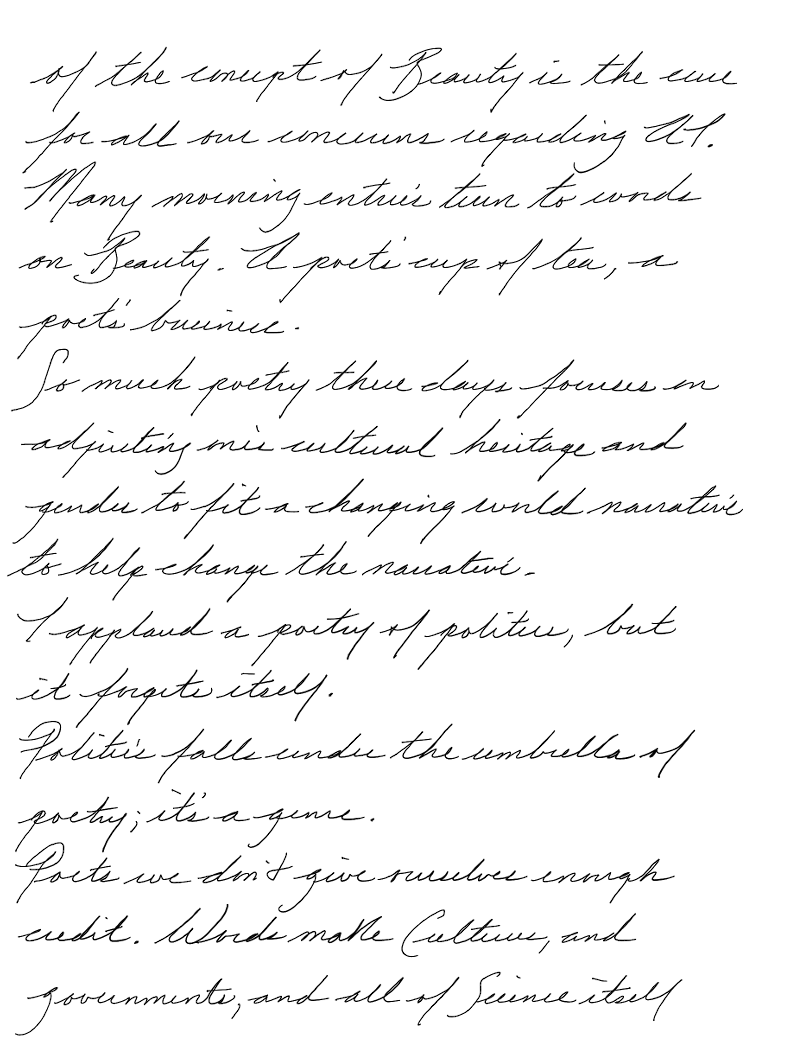 of the concept of Beauty is the cure
for all our concerns regarding AI.
Many morning entries turn to words
on Beauty. A poet's cup of tea, a
poet's business.
So much poetry these days focuses on
adjusting one's cultural heritage and
gender to fit a changing world narrative
to help change the narrative.
I applaud a poetry of politics, but
it forgets itself.
Politics falls under the umbrella of
poetry; it's a genre.
Poets we don't give ourselves enough
credit. Words make Cultures, and
governments, and all of Science itself